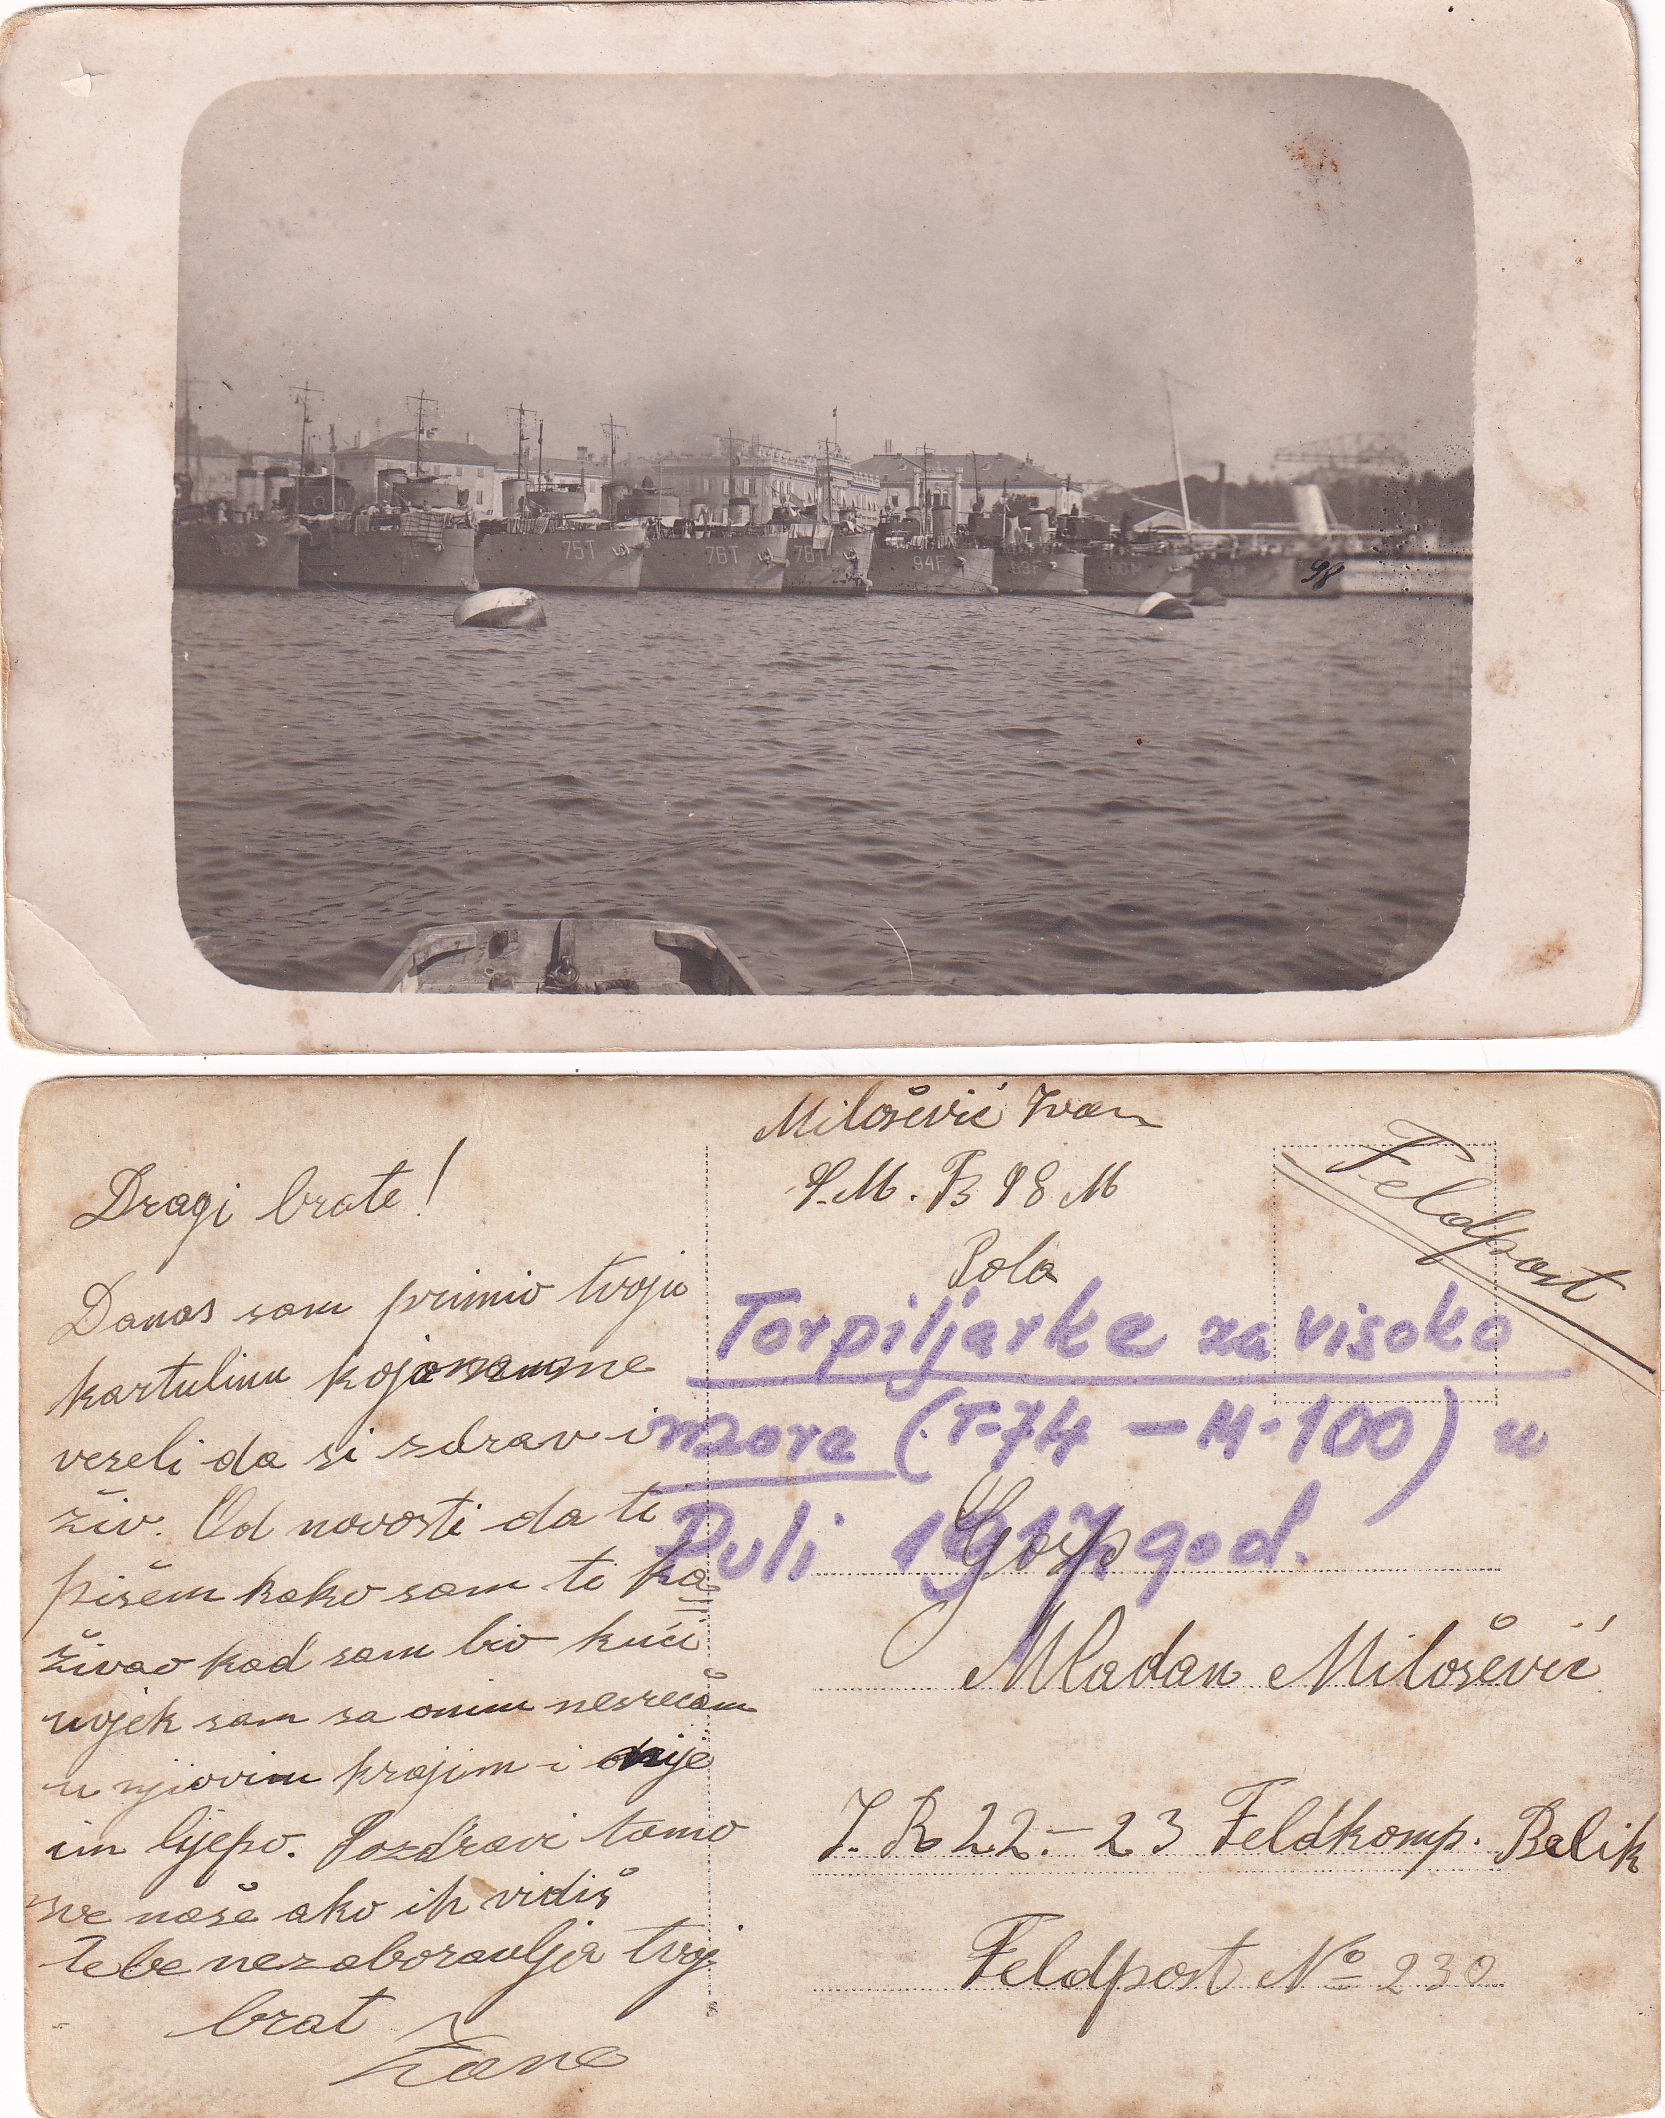 75T
76T
78T
94F
98
Milošević Ivan
S.M.B 98 M
Pola
Feldpost
Dragi brate!
Danas sam primio tvoju
kartulinu koja
veseli da si zdrav i
živ. Od novosti da ti
pišem kako sam ti ka
živao kad sam bio kući
uvjek sam sa onim nesrećam
u njiovim krajim i nije
im lijepo. Pozdravi tamo
sve naše ako ih vidiš
tebe nezaboravlja tvoj
brat
Torpiljarke za visoko
more (T-74 – M-100) u
Puli 1917 god.
Gosp
Mladan Milošević
I. R 22.–23 Feldkomp. Belik
Feldpost No 230